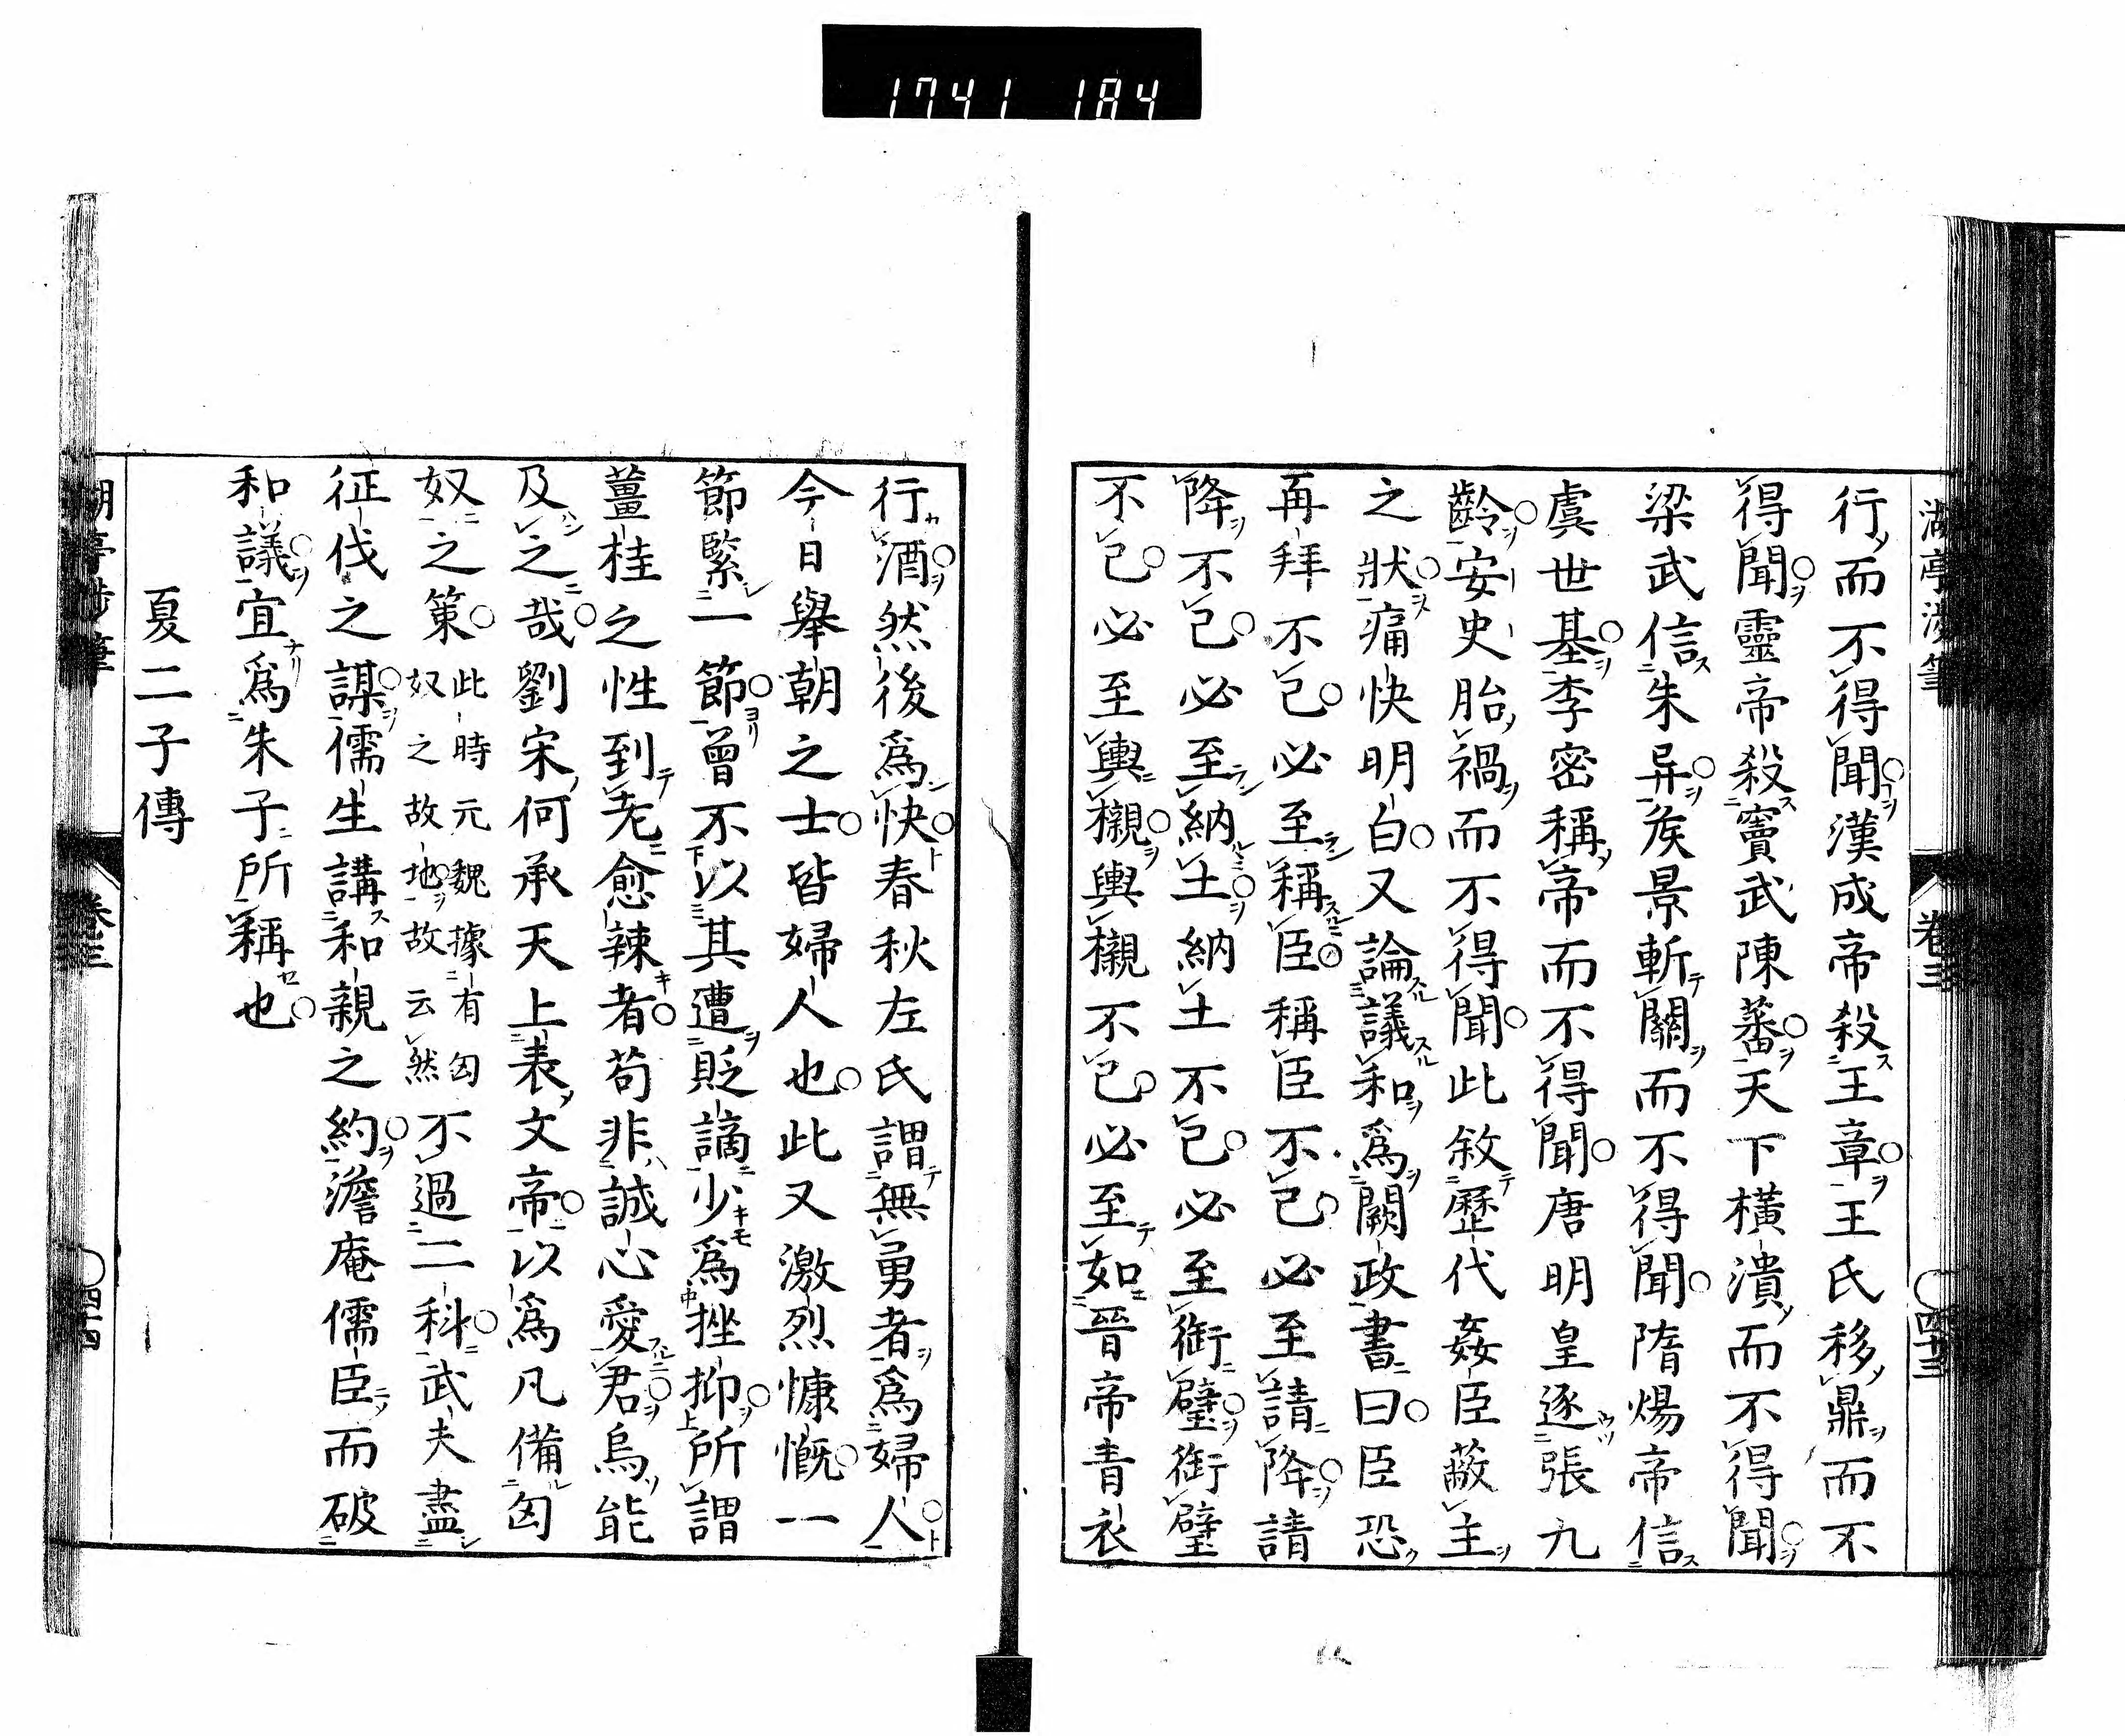 1741 184
湖亭渉筆 卷三 四十三
行而不得聞漢成帝殺王章王氏移鼎而不
得聞靈帝殺竇武陳蕃天下橫潰而不得聞
梁武信朱异矦景斬關而不得聞隋煬帝信
虞世基李密稱帝而不得聞唐明皇逐張九
齡安史胎禍而不得聞此敘歷代姦臣蔽主
之狀痛快明白又論議和爲闕政書曰臣恐
再拜不已必至稱臣稱臣不已必至請降請
降不已必至納土納土不已必至銜璧銜璧
不已必至輿櫬輿櫬不已必至如晉帝青衣
行酒然後爲快春秋左氏謂無勇者爲婦人
今日舉朝之士皆婦人也此又激烈慷慨一
節緊一節曾不以其遭貶謫少爲挫抑所謂
薑桂之性到老愈辣者苟非誠心愛君烏能
及之哉劉宋何承天上表文帝以爲凡備匈
奴之策此時元魏據有匈奴之故地故云然不過二科武夫盡
征伐之謀儒生講和親之約澹庵儒臣而破
和議宜爲朱子所稱也
夏二子傳
湖亭渉筆 卷三 四十四